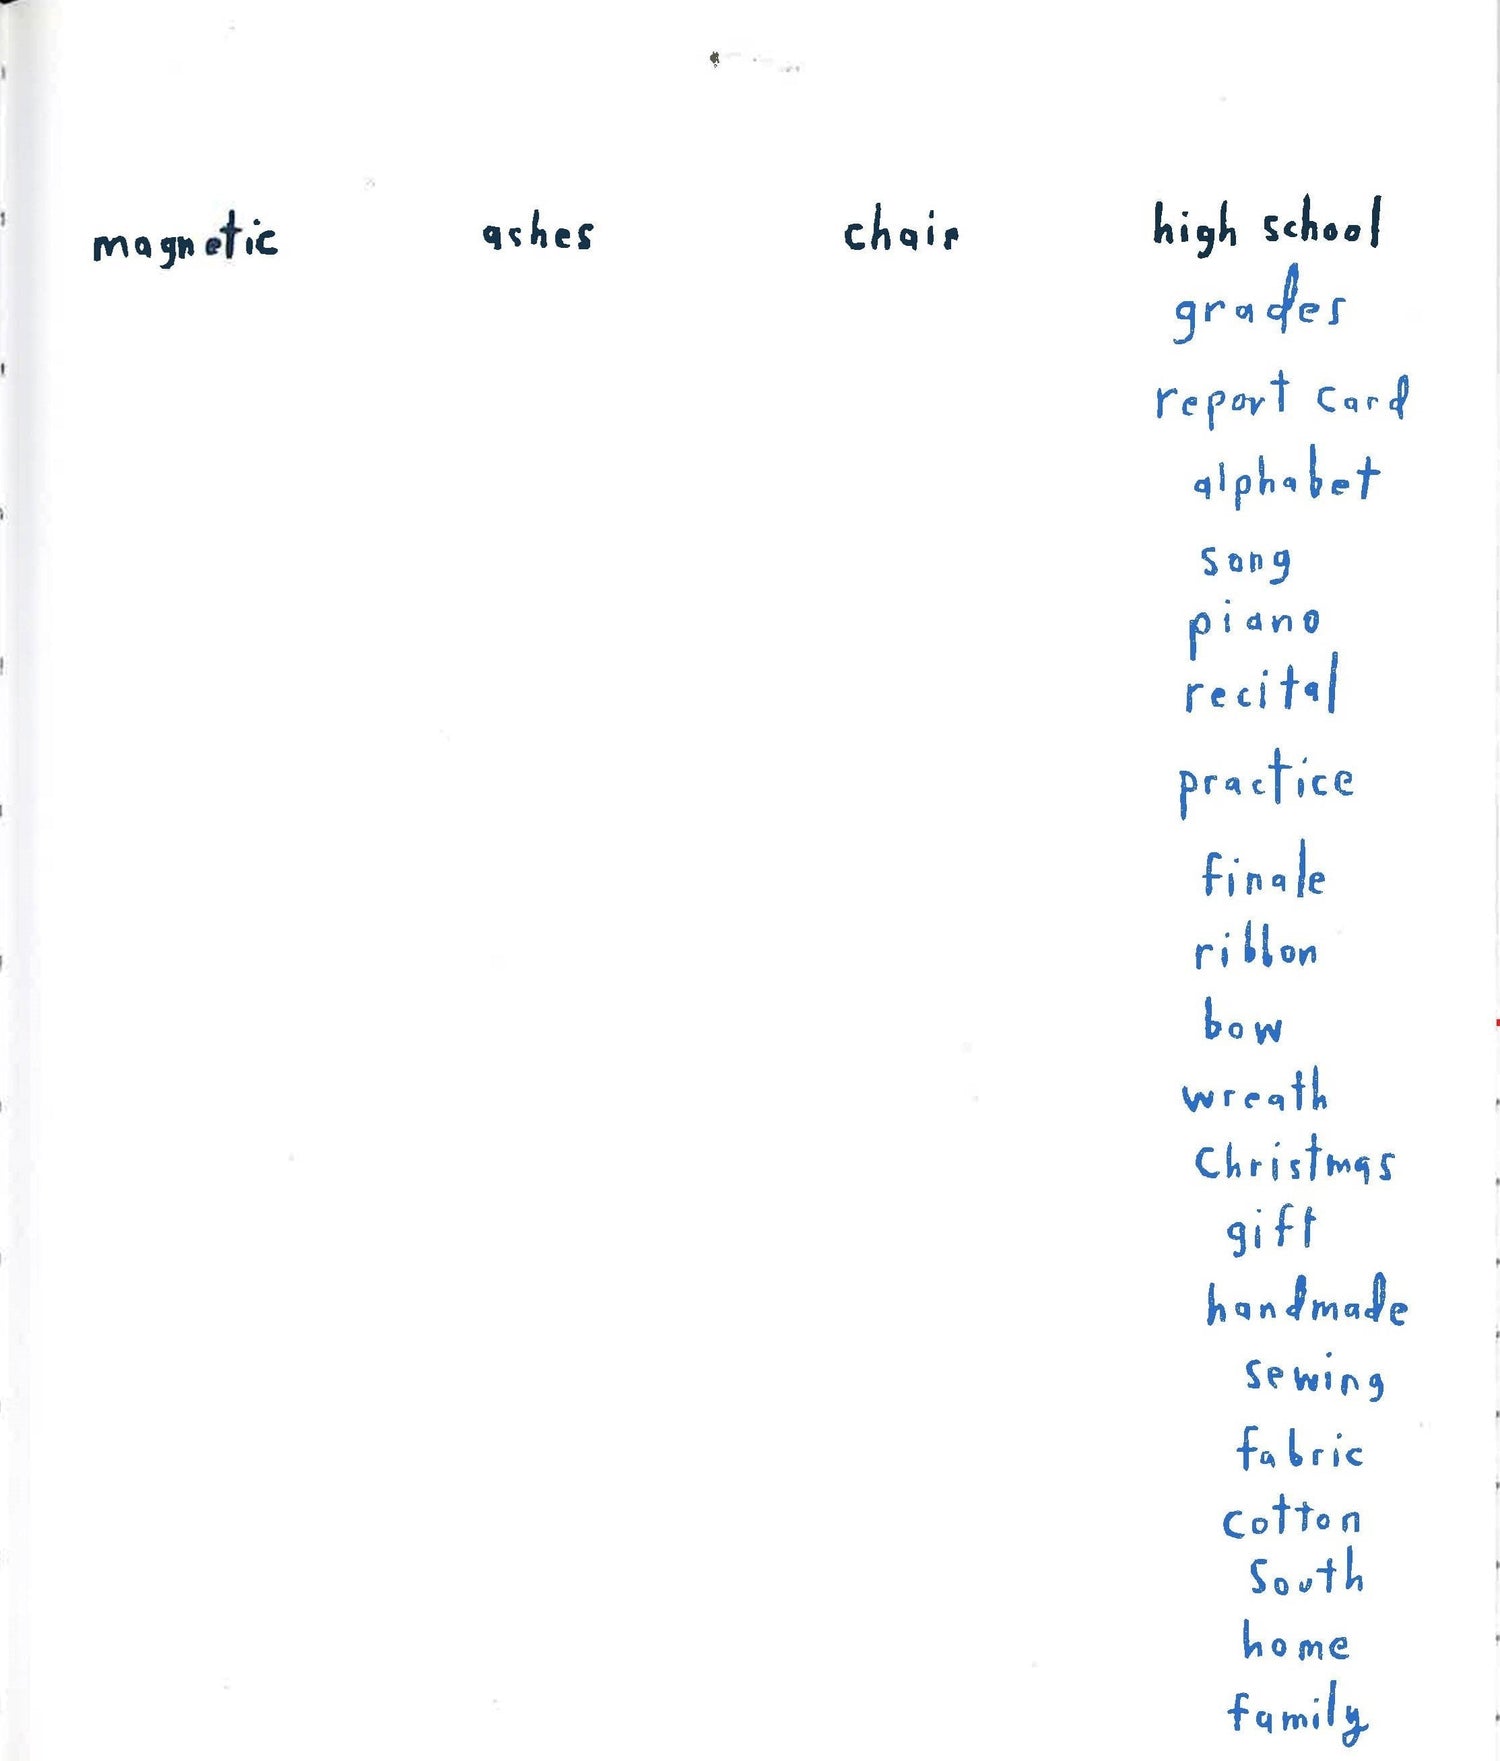 magnetic ashes chair high school
grades
report card
alphabet
song
piano
recital
practice
finale
ribbon
bow
wreath
Christmas
gift
handmade
sewing
fabric
cotton
South
home
family